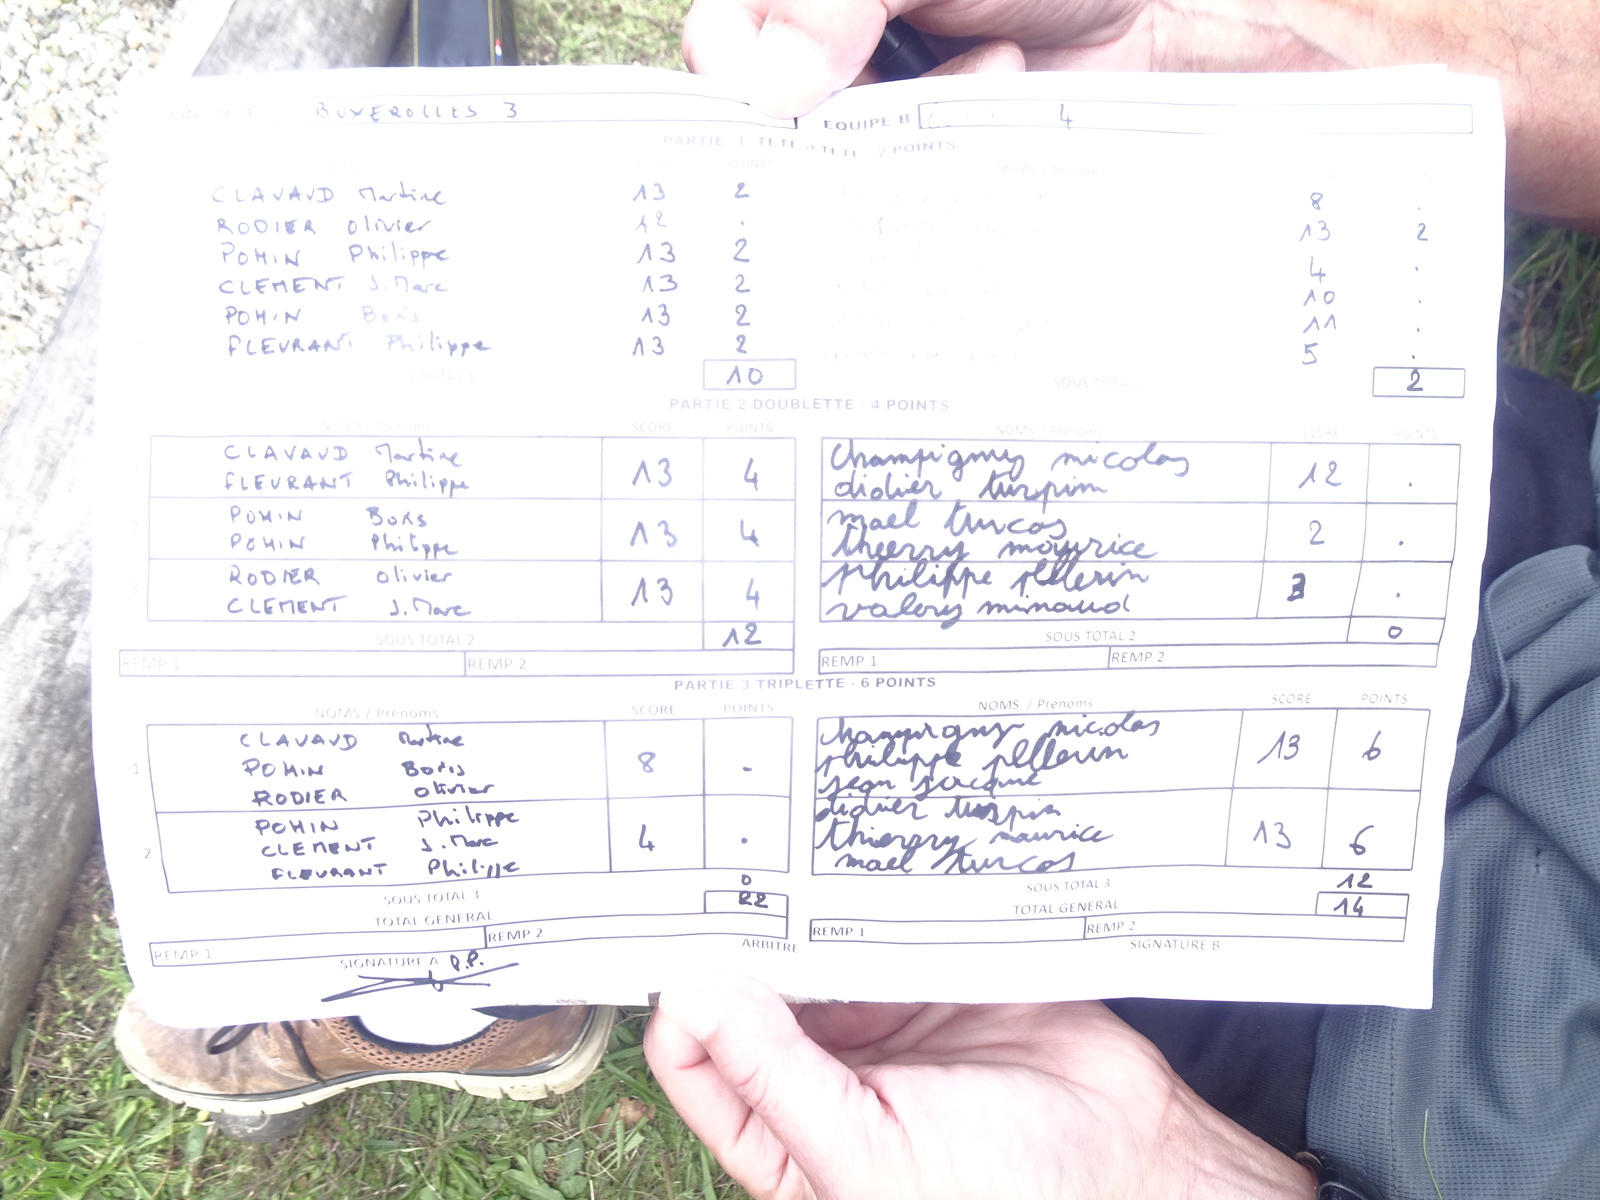 BUXEROLLES 3
EQUIPE B 4
PARTIE 1 TETE a TETE - 2 POINTS
POINTS
CLAVAUD Martine 13 2 8 .
RODIER Olivier 12 . 13 2
POHIN Philippe 13 2 4 .
CLEMENT J.Marc 13 2 10 .
POHIN Boris 13 2 11 .
FLEURANT Philippe 13 2 5 .
10 SOUS TOTAL 2
PARTIE 2 DOUBLETTE - 4 POINTS
NOMS / Prénoms SCORE POINTS NOMS / Prénoms SCORE POINTS
CLAVAUD Martine
FLEURANT Philippe 13 4
champigny nicolas
didier turpin 12 .
POHIN Boris
POHIN Philippe 13 4
mael turcos
thierry mourice 2 .
RODIER Olivier
CLEMENT J.Marc 13 4
philippe pellerin
valery minaud 3 .
SOUS TOTAL 2 12 SOUS TOTAL 2 0
REMP 1 REMP 2 REMP 1 REMP 2
PARTIE 3 TRIPLETTE - 6 POINTS
NOMS / Prénoms SCORE POINTS NOMS / Prénoms SCORE POINTS
1 CLAVAUD Martine
POHIN Boris 8 -
RODIER Olivier
champigny nicolas
philippe pellerin 13 6
jean jacque
2 POHIN Philippe
CLEMENT J.Marc 4 .
FLEURANT Philippe
didier turpin
thierry maurice 13 6
mael turcos
SOUS TOTAL 3 0 SOUS TOTAL 3 12
TOTAL GENERAL 22 TOTAL GENERAL 14
REMP 1 REMP 2 REMP 1 REMP 2
SIGNATURE A P.P. ARBITRE SIGNATURE B